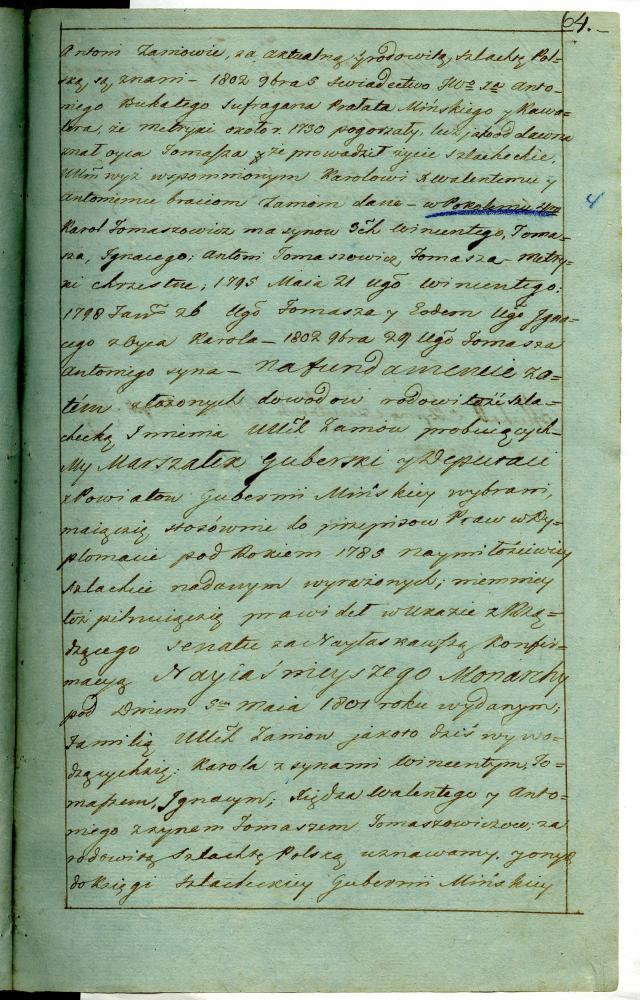 64.
Antoni Zamowie, za aktualną y rodowitą szlachtę Pol=
ską są znani – 1802 9bra 5 swiadectwo JWo Xa Anto=
niego Bukatego Sufragana Prałata Mińskiego y Kawa=
lera, że metryki około r. 1730 pogorzały, lecz od dawna
znał oyca Tomasza y że prowadził życie szlacheckie,
Ulm wyż wspomnionym Karolowi X Walentemu y
Antoniemu braciom Zamom dane – w Pokoleniu 4tm
4
Karol Tomaszowicz ma synow 3ch Wincentego, Toma=
sza, Ignacego; Antoni Tomaszowicz, Tomasza – metry=
ki chrzestne; 1795 Maia 21 Ugō Wincentego;
1798 26 Ugō Tomasza y Eodem Ugō Igna=
cego z Oyca Karola – 1802 9bra 29 Ugō Tomasza
Antoniego syna – na fundamencie za=
tém złożonych dowodow rodowitość szla=
checką Imienia Ulch Zamow probuiących –
My Marszałek Guberski y Deputaci
z Powiatow Gubernii Mińskiey wybrani,
maiąc się stosownie do przepisow Praw w Dy=
plomacie pod Rokiem 1785 naymiłościwiey
szlachcie nadanym wyrażonych; niemniey
też pilnuiąc się prawideł w Ukazie z Rzą=
dzącego Senatu za Nayłaskawszą Konfir=
macyą Nayiaśnieyszego Monarchy
pod Dniem 5m Maia 1801 roku wydanym;
Familią Ulch Zamow jakoto dziś wywo=
dzących się: Karola z synami Wincentym, To=
maszem, Ignacym; Xiędza Walentego y Anto=
niego z synem Tomaszem Tomaszowiczow, za
rodowitą Szlachtę Polską uznawamy, y onych
do Księgi Szlacheckiey Gubernii Mińskiey